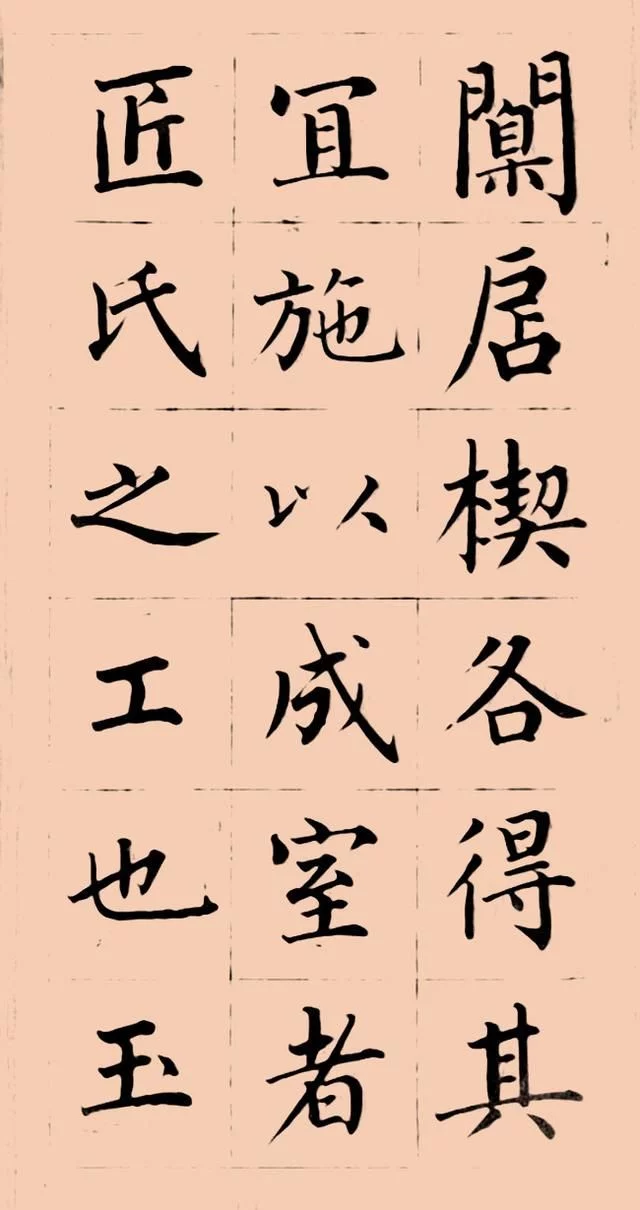 闑扂楔各得其
冝施以成室者
匠氏之工也玉